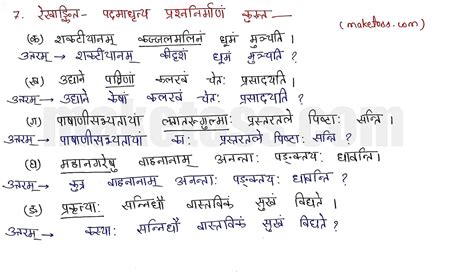 7. रेखाङ्कित- पदमाधृत्य प्रश्ननिर्माणं कुरुत — (maketoss.com)
(क) शकटीयानम् कज्जलमलिनं धूमं मुञ्चति ।
उत्तरम् → शकटीयानम् कीदृशं धूमं मुञ्चति ?
(ख) उद्याने पक्षिणां कलरवं चेतः प्रसादयति ।
उत्तरम् → उद्याने केषां कलरवं चेतः प्रसादयति ?
(ग) पाषाणीसभ्यतायां लतातरुगुल्माः प्रस्तरतले पिष्टाः सन्ति ।
उत्तरम् → पाषाणीसभ्यतायां काः प्रस्तरतले पिष्टाः सन्ति ?
(घ) महानगरेषु वाहनानाम् अनन्ताः पङ्क्तयः धावन्ति ।
उत्तरम् → कुत्र वाहनानाम् अनन्ताः पङ्क्तयः धावन्ति ?
(ङ) प्रकृत्याः सन्निधौ वास्तविकं सुखं विद्यते ।
उत्तरम् → कस्याः सन्निधौ वास्तविकं सुखं विद्यते ?